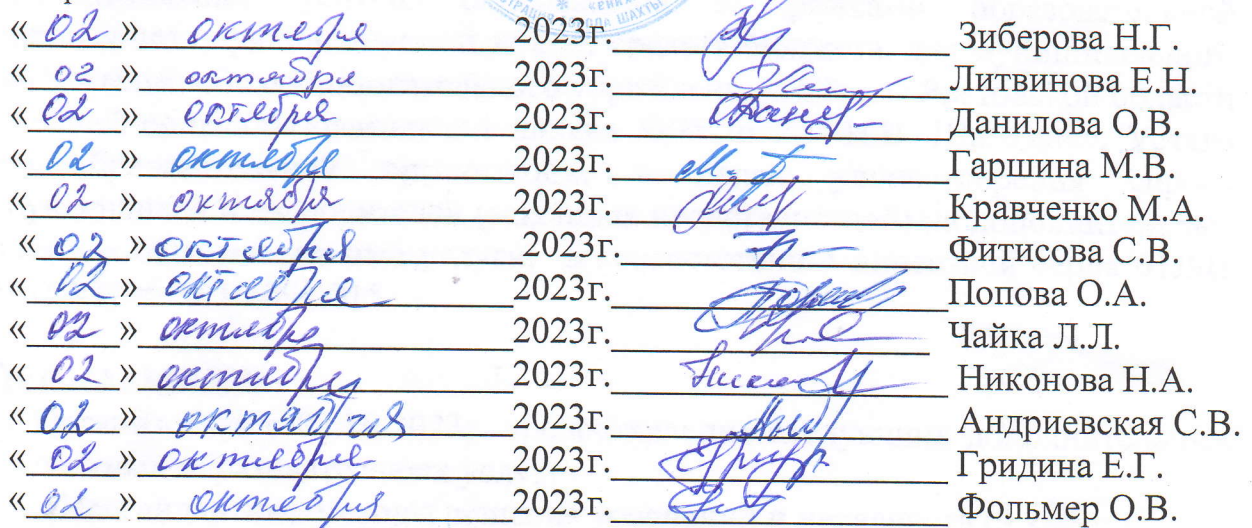 ШАХТЫ
« 02 » октября 2023г. Зиберова Н.Г.
« 02 » октября 2023г. Литвинова Е.Н.
« 02 » октября 2023г. Данилова О.В.
« 02 » октября 2023г. Гаршина М.В.
« 02 » октября 2023г. Кравченко М.А.
« 02 » октября 2023г. Фитисова С.В.
« 02 » октября 2023г. Попова О.А.
« 02 » октября 2023г. Чайка Л.Л.
« 02 » октября 2023г. Никонова Н.А.
« 02 » октября 2023г. Андриевская С.В.
« 02 » октября 2023г. Гридина Е.Г.
« 02 » октября 2023г. Фольмер О.В.